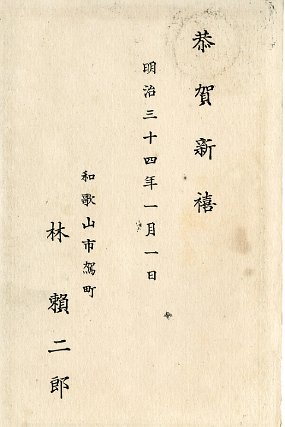 恭賀新禧
明治三十四年一月一日
和歌山市駕町
林賴二郎